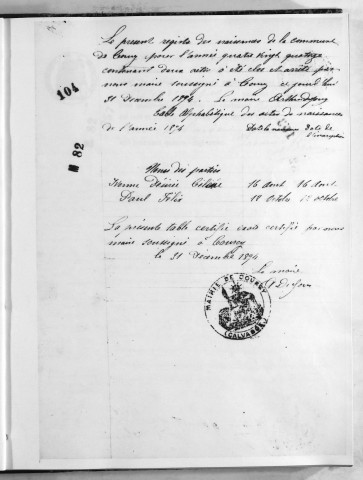 Le présent registre des naissances de la commune
de Courcy, pour l'année quatre vingt quatorze
contenant deux actes a été clos et arrêté par
nous maire soussigné à Courcy, ce jourd'hui
31 Décembre 1894. Le maire
Table Alphabétique des actes de naissances
de l'année 1894 Date de naissance Date de
l'inscription
Noms des parties
Désirée 16 Aout 16 Aout
Paul Félix 12 Octobre 12 Octobre
La présente table certifiée par nous
maire soussigné à Courcy
le 31 Décembre 1894
Le maire
MAIRIE DE COURCY
(CALVADOS)
104
M 82